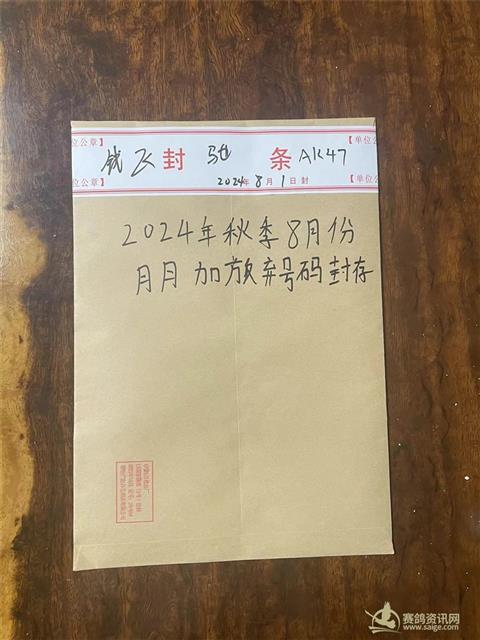 位公章】 【单位公
钱飞 封 驰 条 AK47
位公章】 2024年8月1日封 【单位公
2024年秋季8月份
月月加放弃号码封存
赛鸽资讯网
www.saige.com